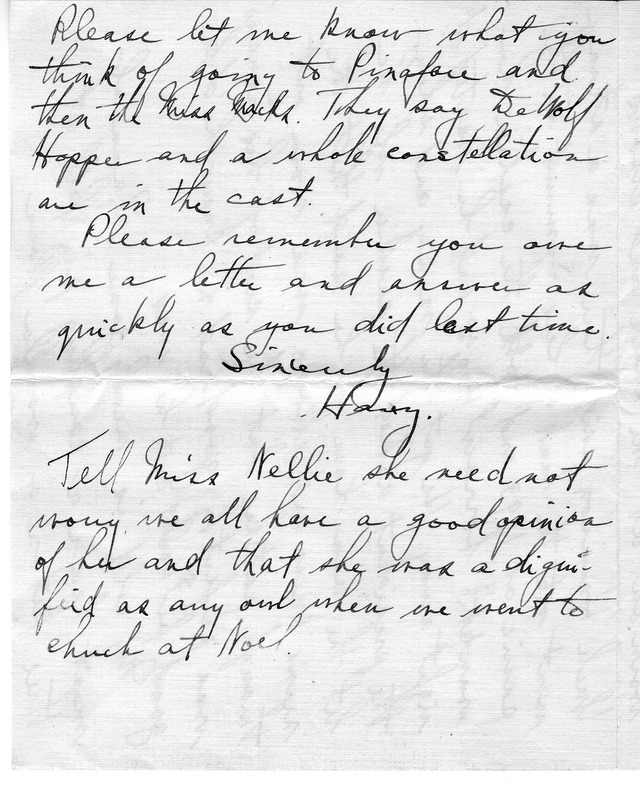 Please let me know what you
think of going to Pinafore and
then the Miss. They say DeWolf
Hopper and a whole constellation
are in the cast.
Please remember you owe
me a letter and answer as
quickly as you did last time.
Sincerely
Harry.
Tell Miss Nellie she need not
worry we all have a good opinion
of her and that she was a digni-
feid as any owl when we went to
chuch at Noel.